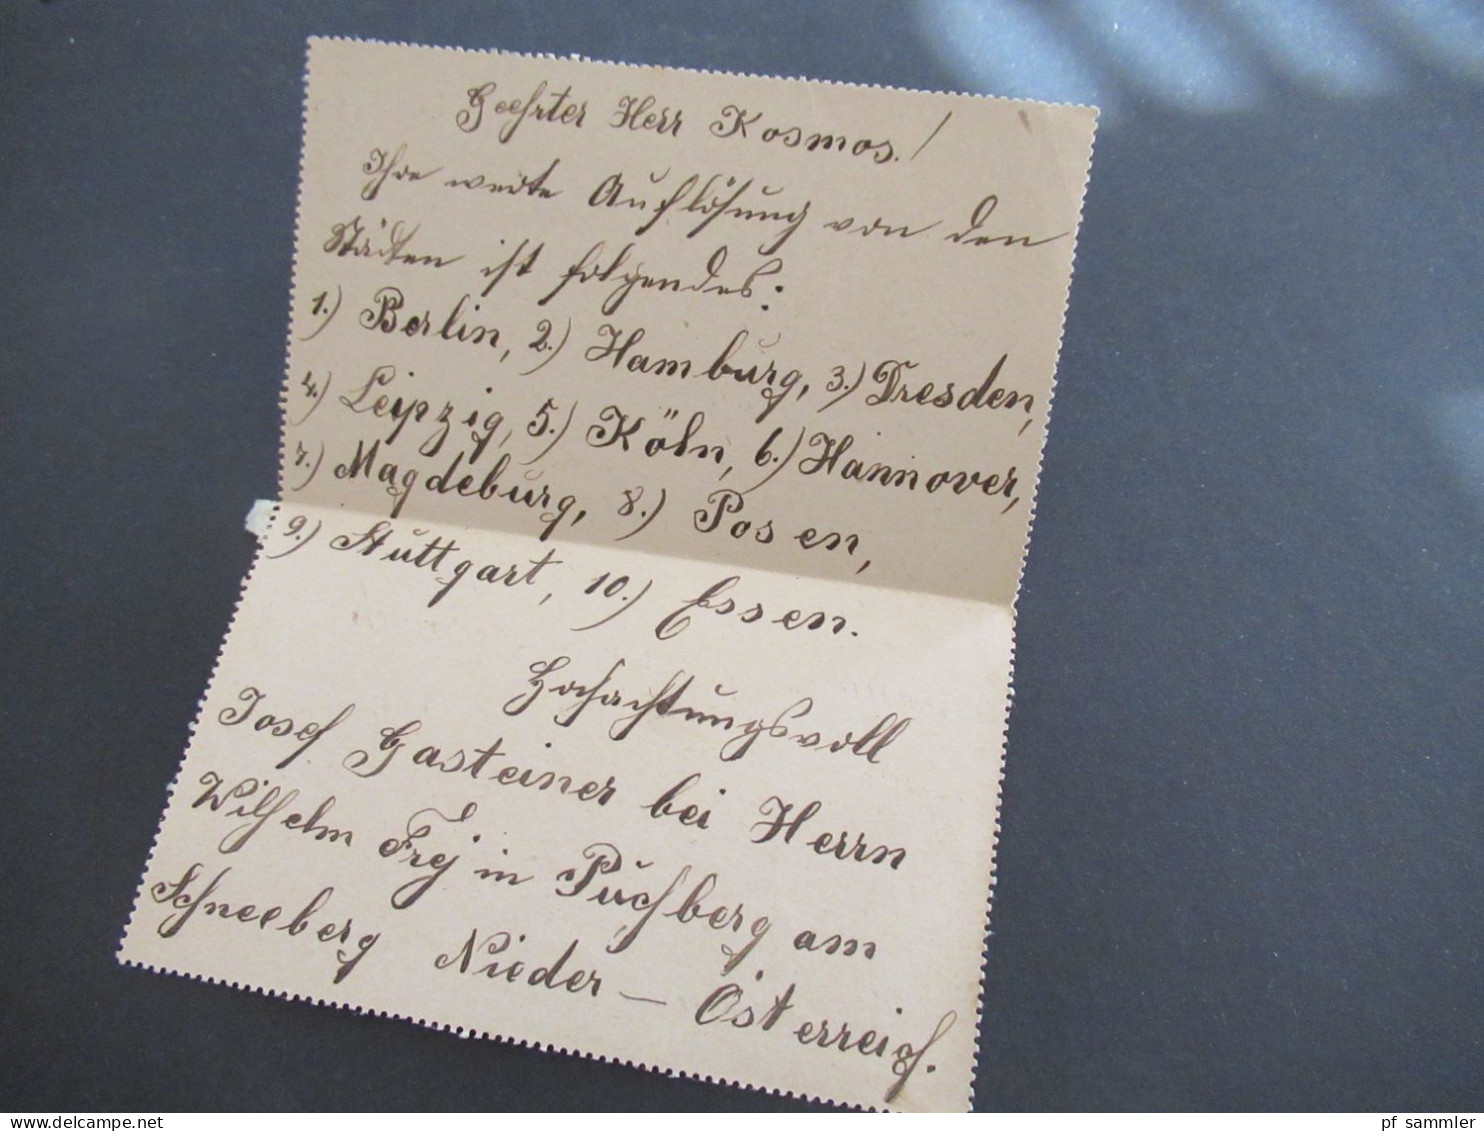 Geehrter Herr Kosmos!
Ihre werte Auflösung von den
Städten ist folgendes:
1.) Berlin, 2.) Hamburg, 3.) Dresden,
4.) Leipzig, 5.) Köln, 6.) Hannover,
7.) Magdeburg, 8.) Posen,
9.) Stuttgart, 10.) Essen.
Hochachtungsvoll
Josef Gasteiner bei Herrn
Wilhelm Frej in Puchberg am
Schneeberg Nieder – Österreich.
pf sammler